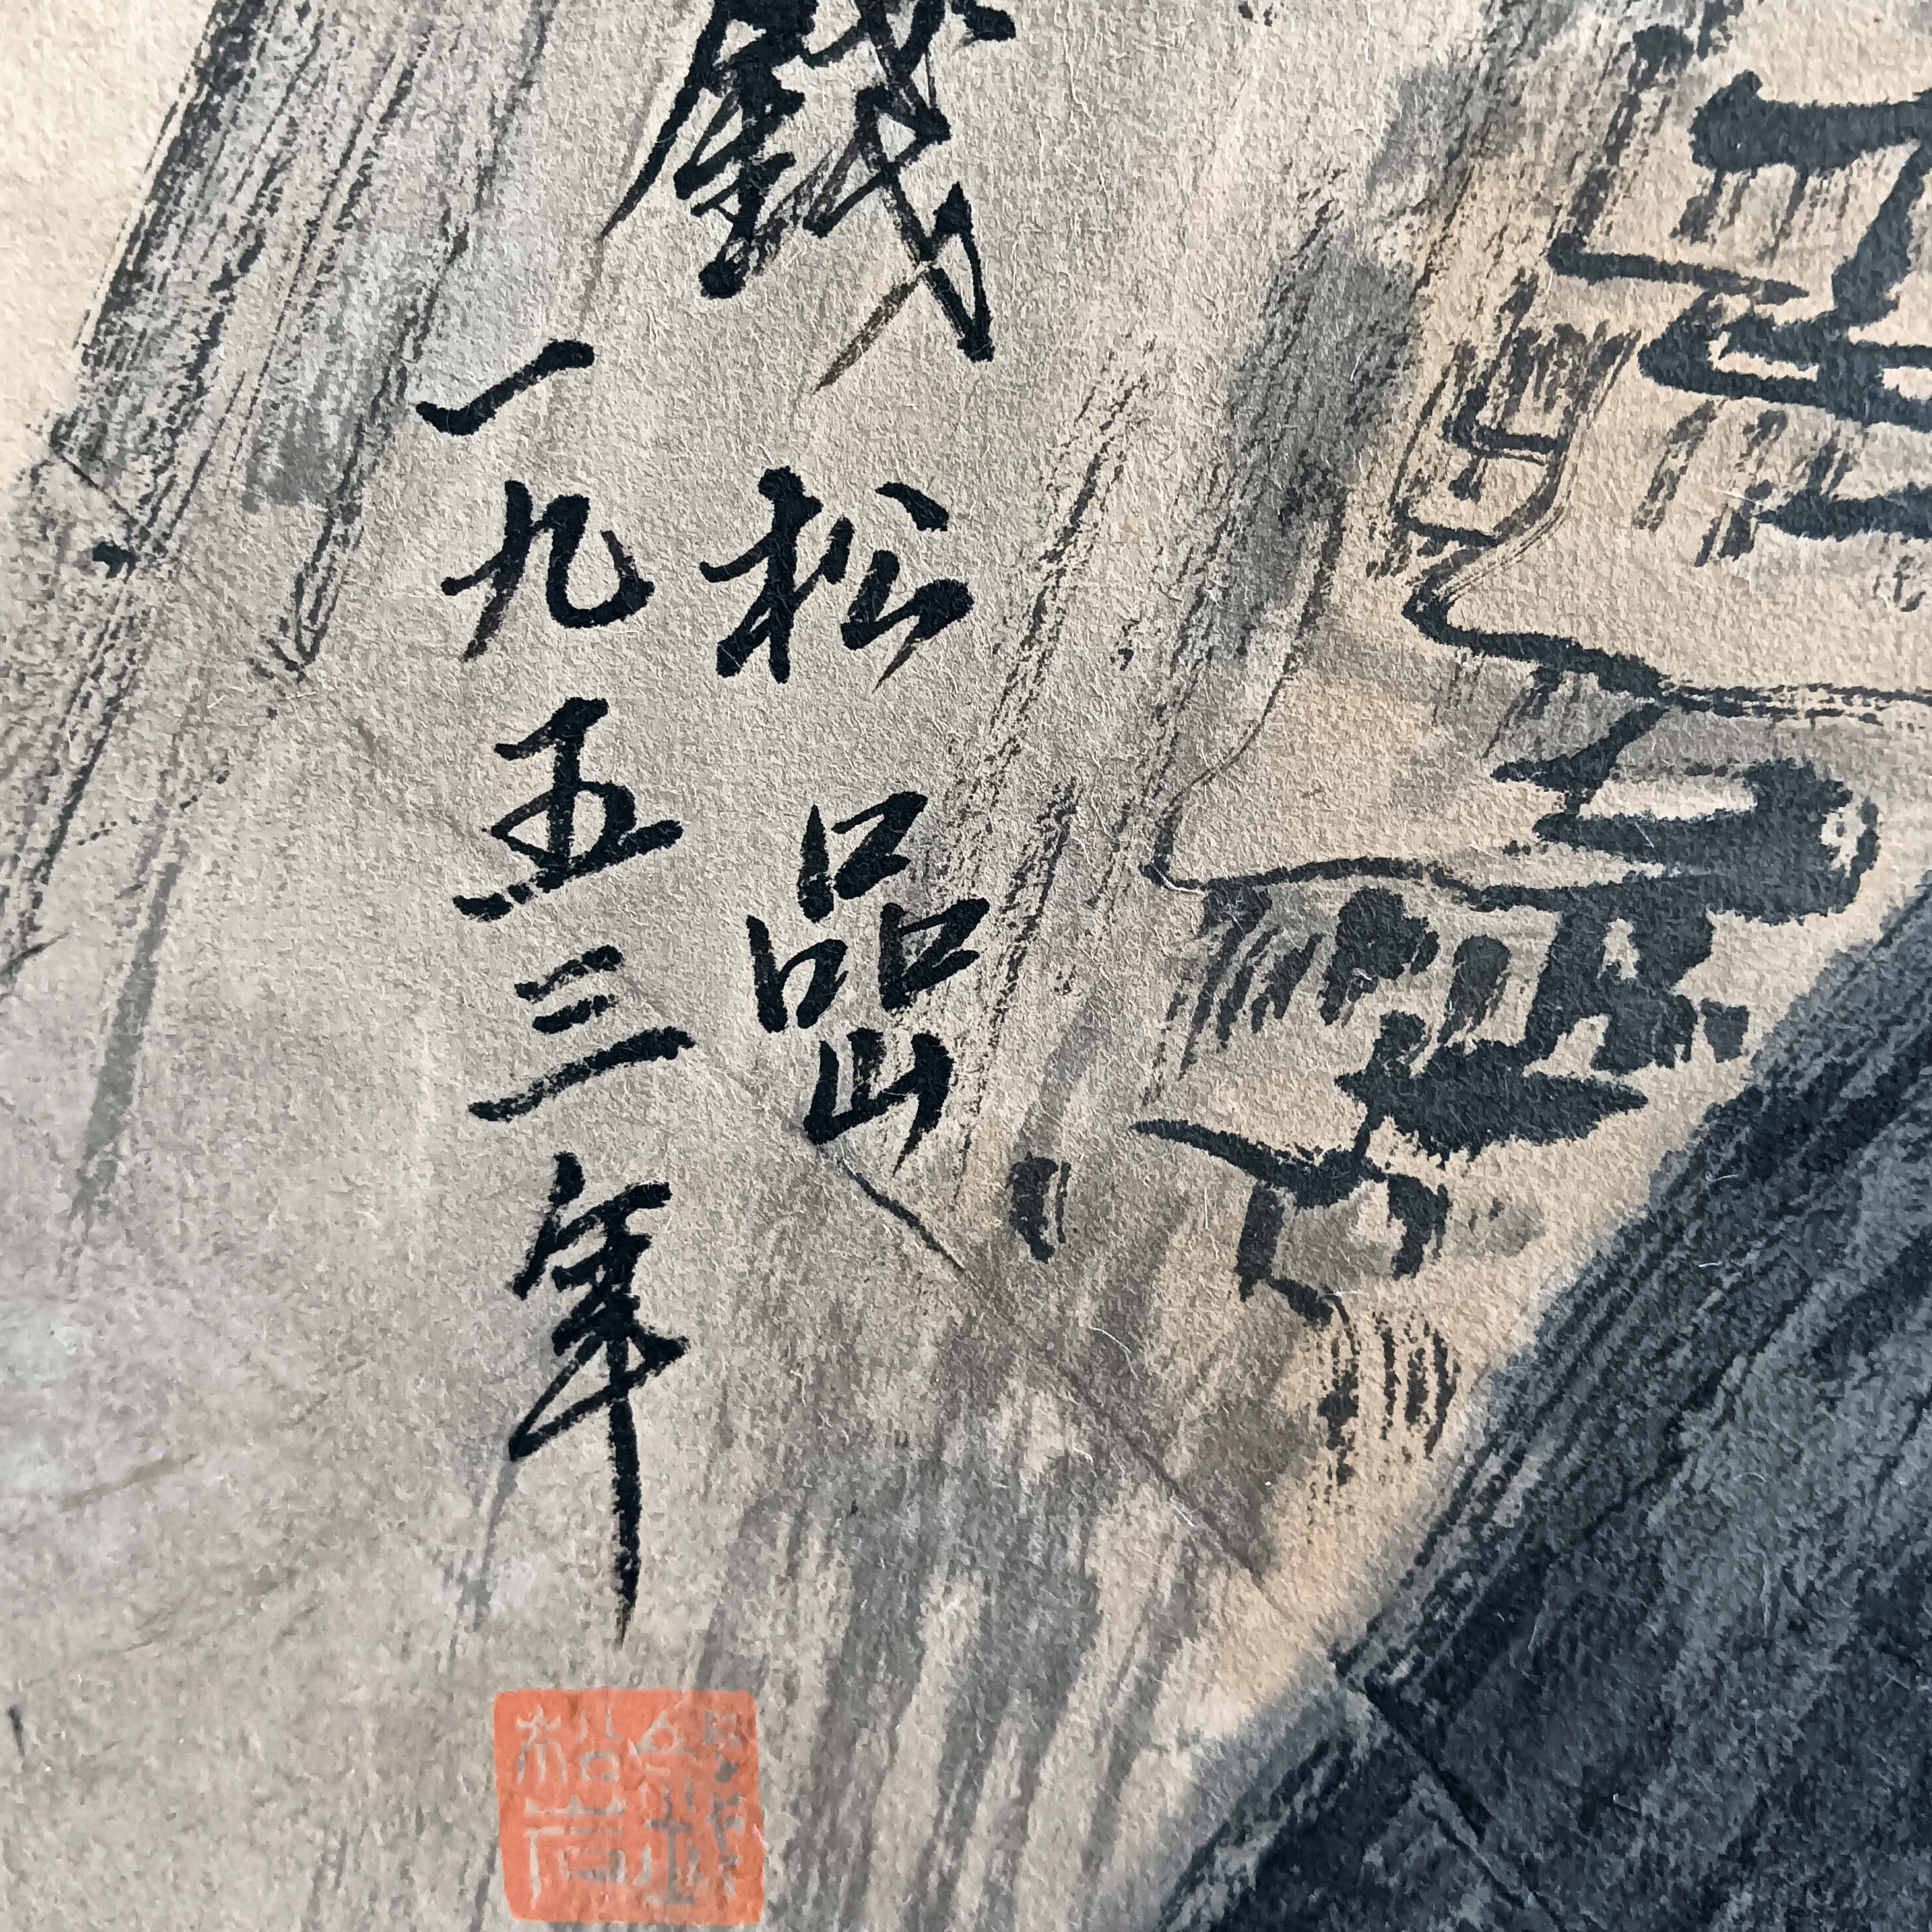 錢松嵒
一九五三年
錢松嵒